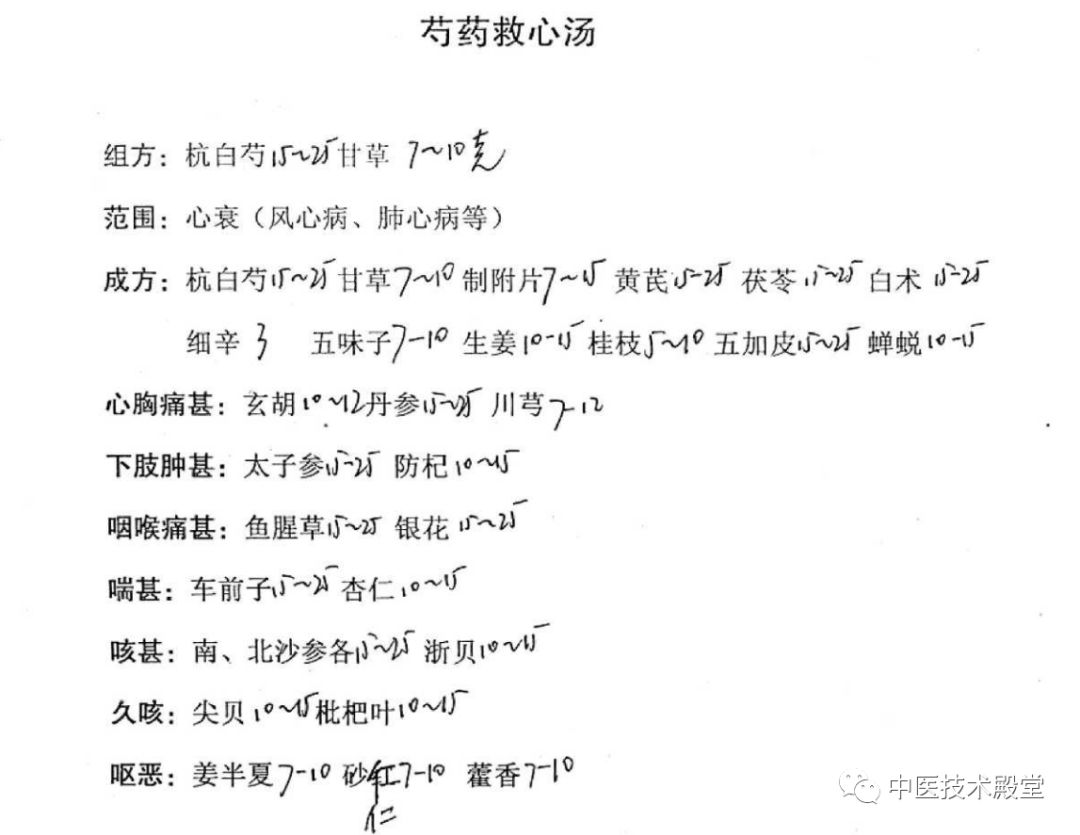 芍药救心汤
组方：杭白芍15~25甘草 7~10克
范围：心衰（风心病、肺心病等）
成方：杭白芍15~25甘草7~10制附片7~15 黄芪15-25 茯苓15~25白术 15-25
细辛 3 五味子7-10生姜10-15桂枝5~10五加皮15~25蝉蜕10-15
心胸痛甚：玄胡10~12丹参15~25 川芎7-12
下肢肿甚：太子参15-25 防杞10~15
咽喉痛甚：鱼腥草15~25 银花 15~25
喘甚：车前子15~25杏仁10~15
咳甚：南、北沙参各15~25 浙贝10~15
久咳：尖贝10~15枇杷叶10~15
呕恶：姜半夏7-10 砂仁7-10 藿香7-10
中医技术殿堂